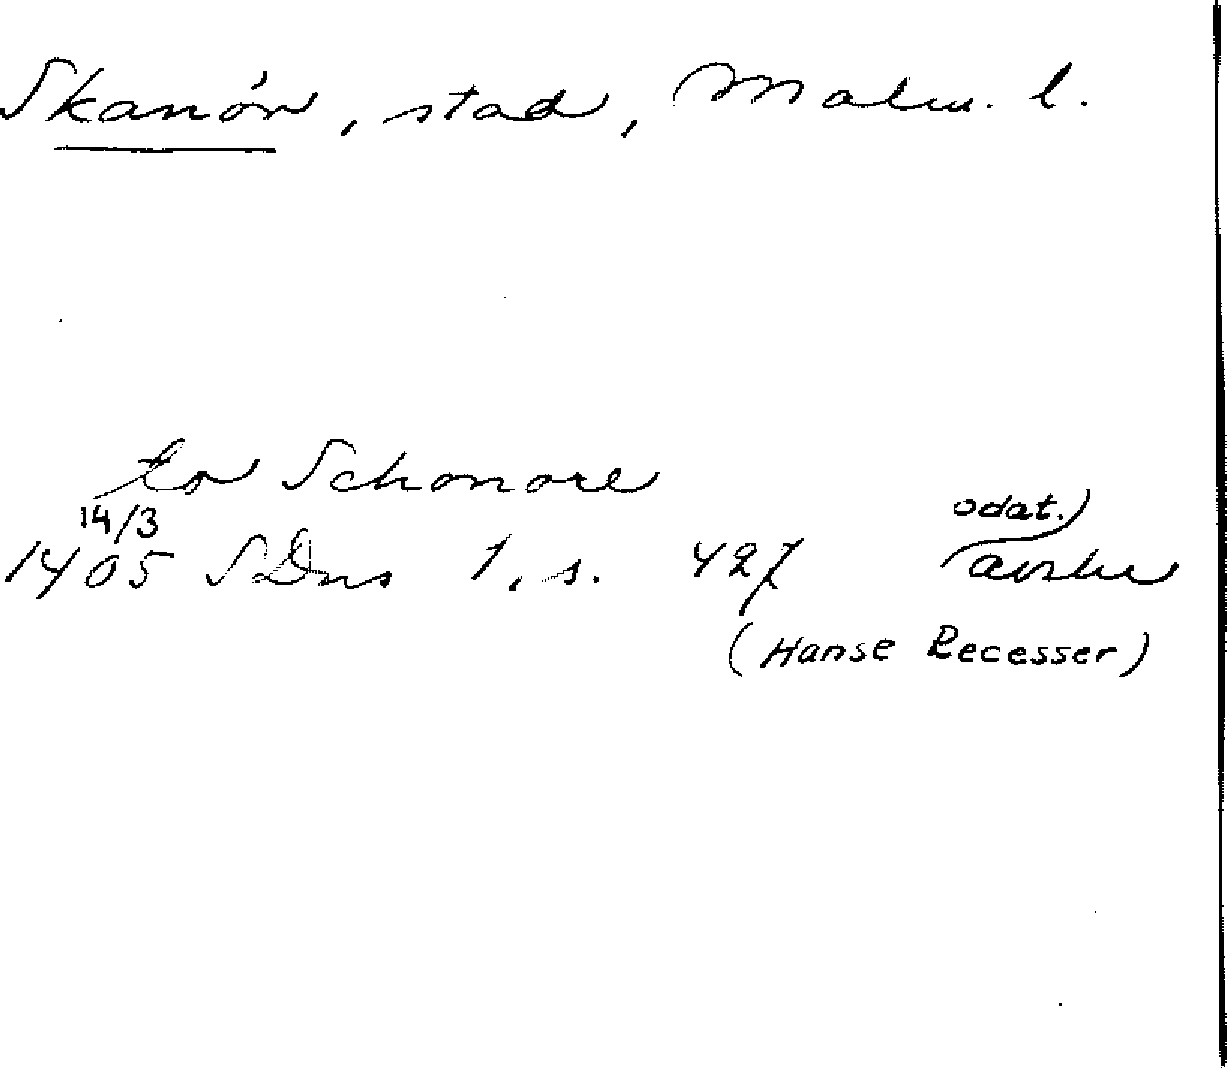 Skanör, stad, Malm. l.
to Schonore
14/3
odat.)
1405 SDns 1, s. 427 avskr
(Hanse Recesser)